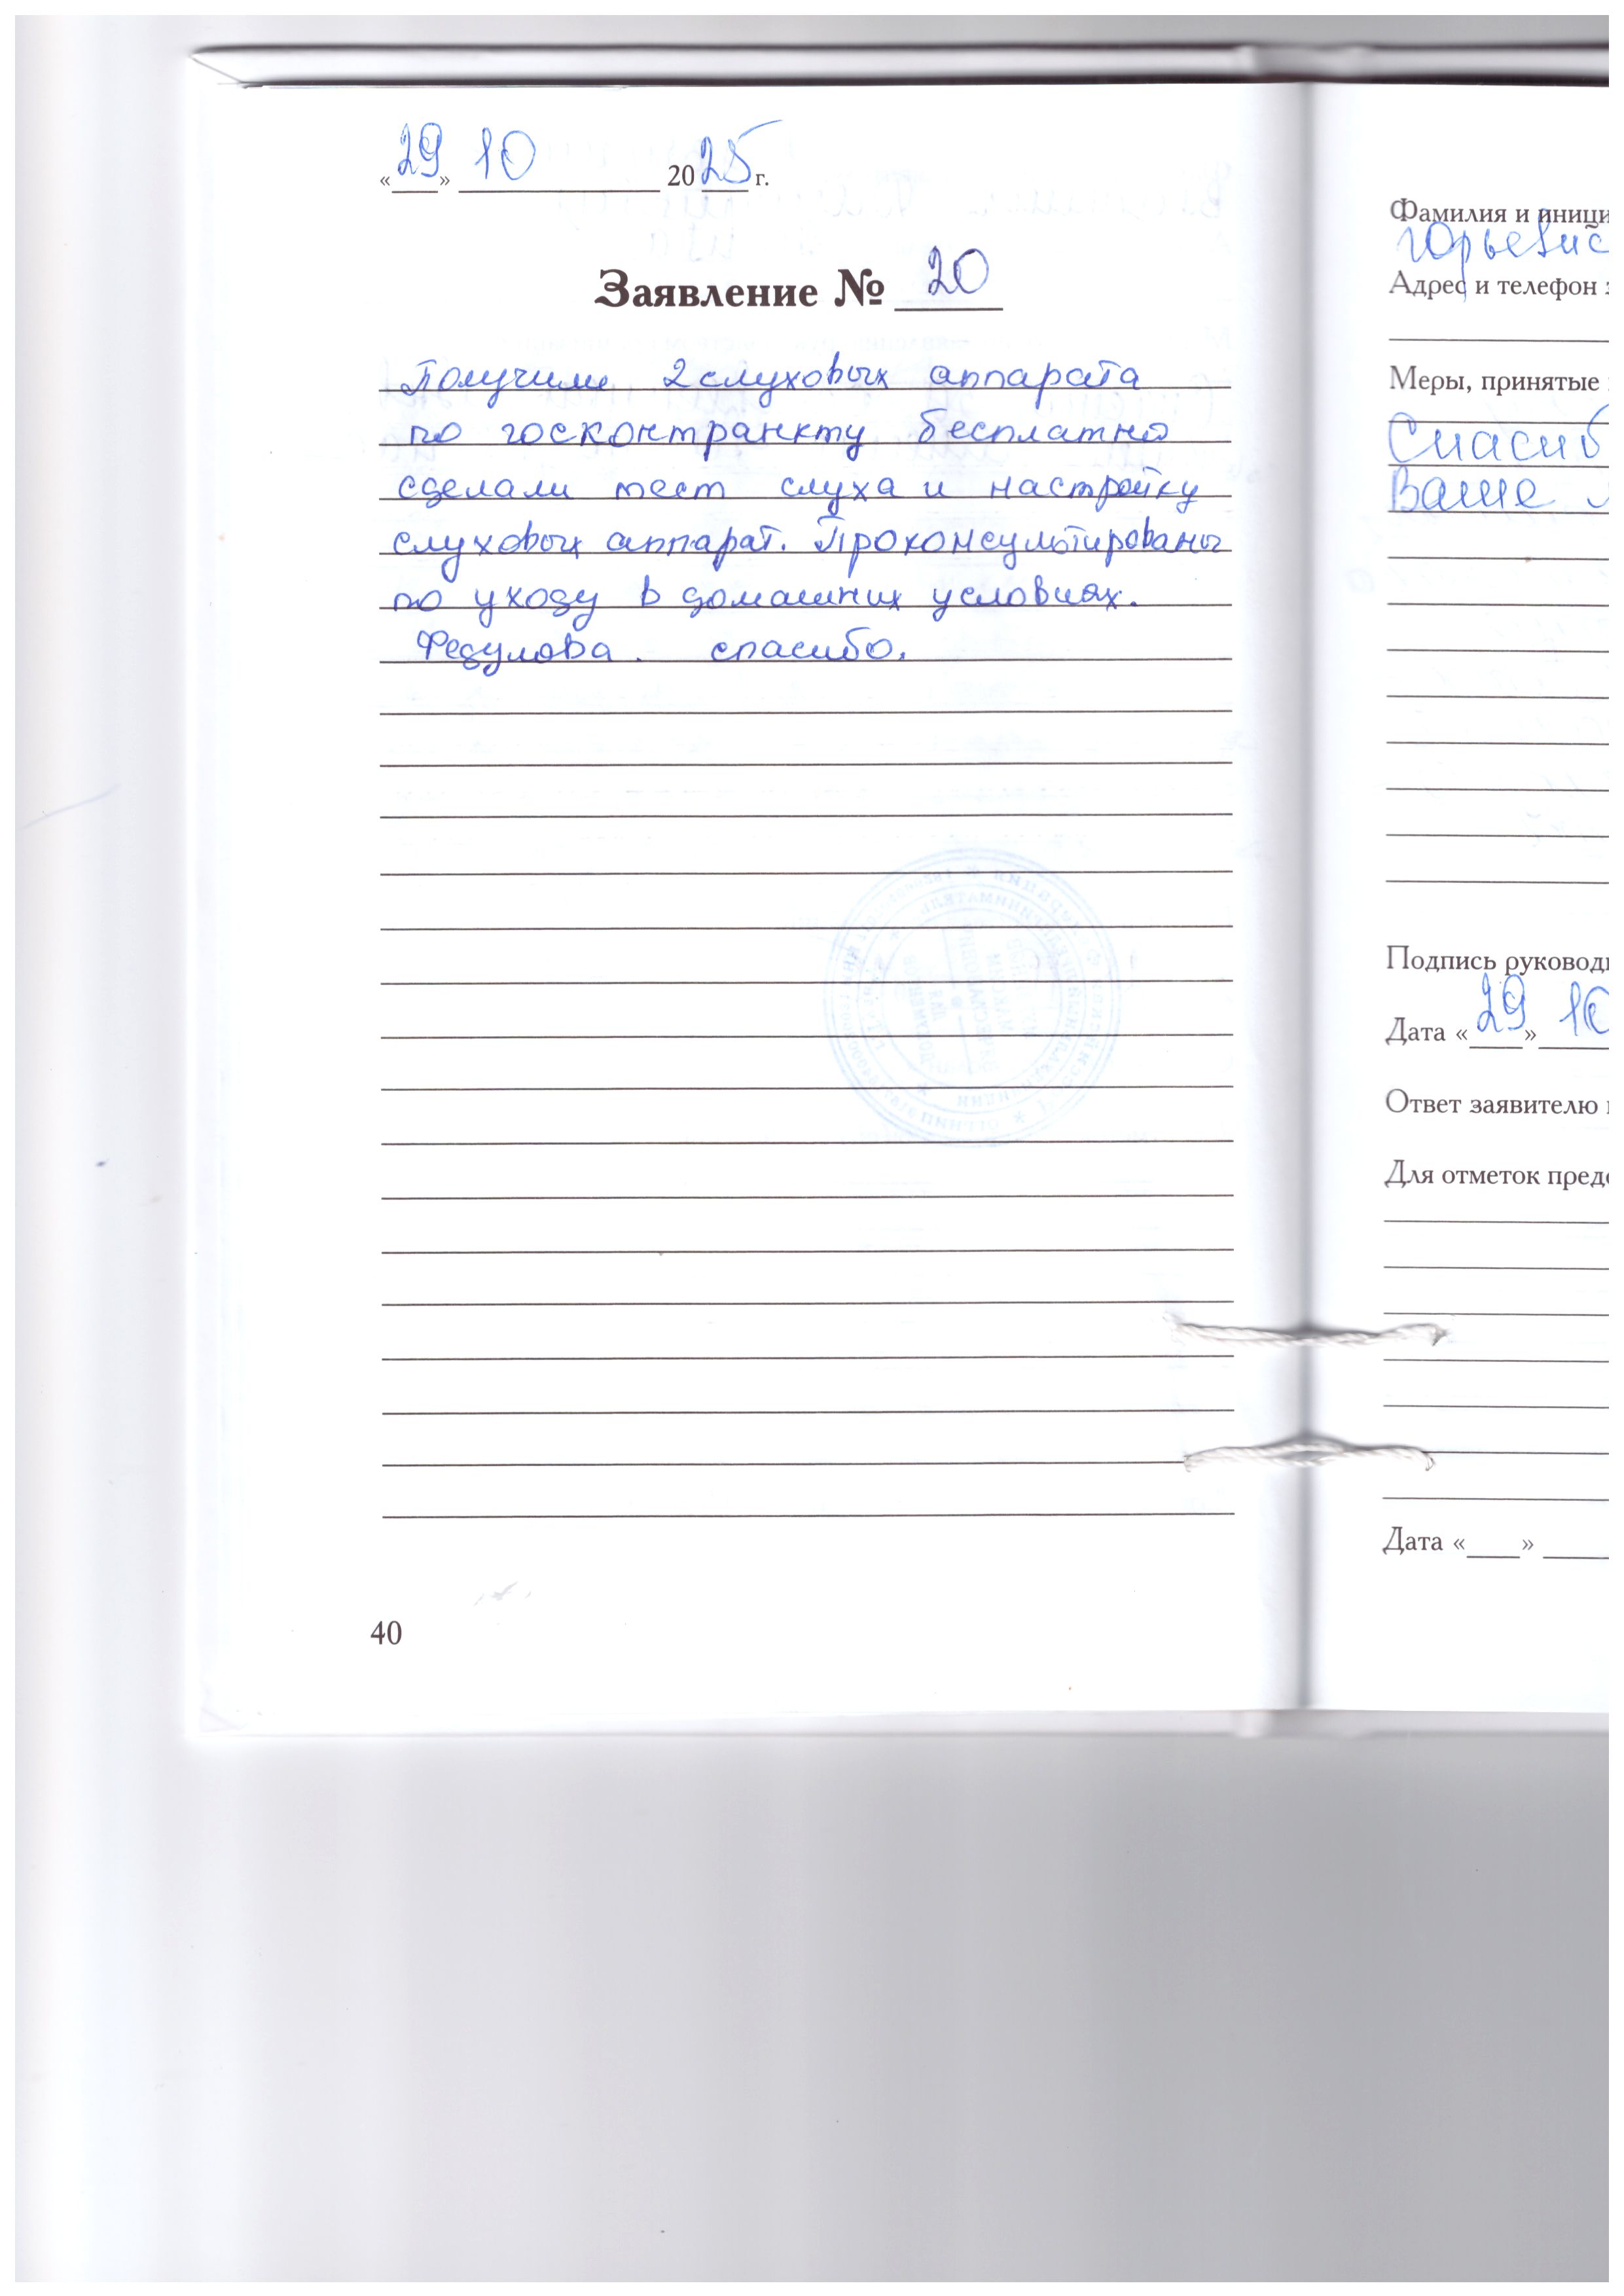 «29» 10 2025 г.
Заявление № 20
Получили 2 слуховых аппарата
по госконтранкту бесплатно
сделали тест слуха и настройку
слуховых аппарат. Проконсультированы
по уходу в домашних условиях.
Федулова. спасибо.
40
Фамилия и иници
Юрьевич
Адрес и телефон з
Меры, принятые
Спасиб
Ваше
Подпись руковод
Дата «29» 10
Ответ заявителю
Для отметок пред
Дата «___»